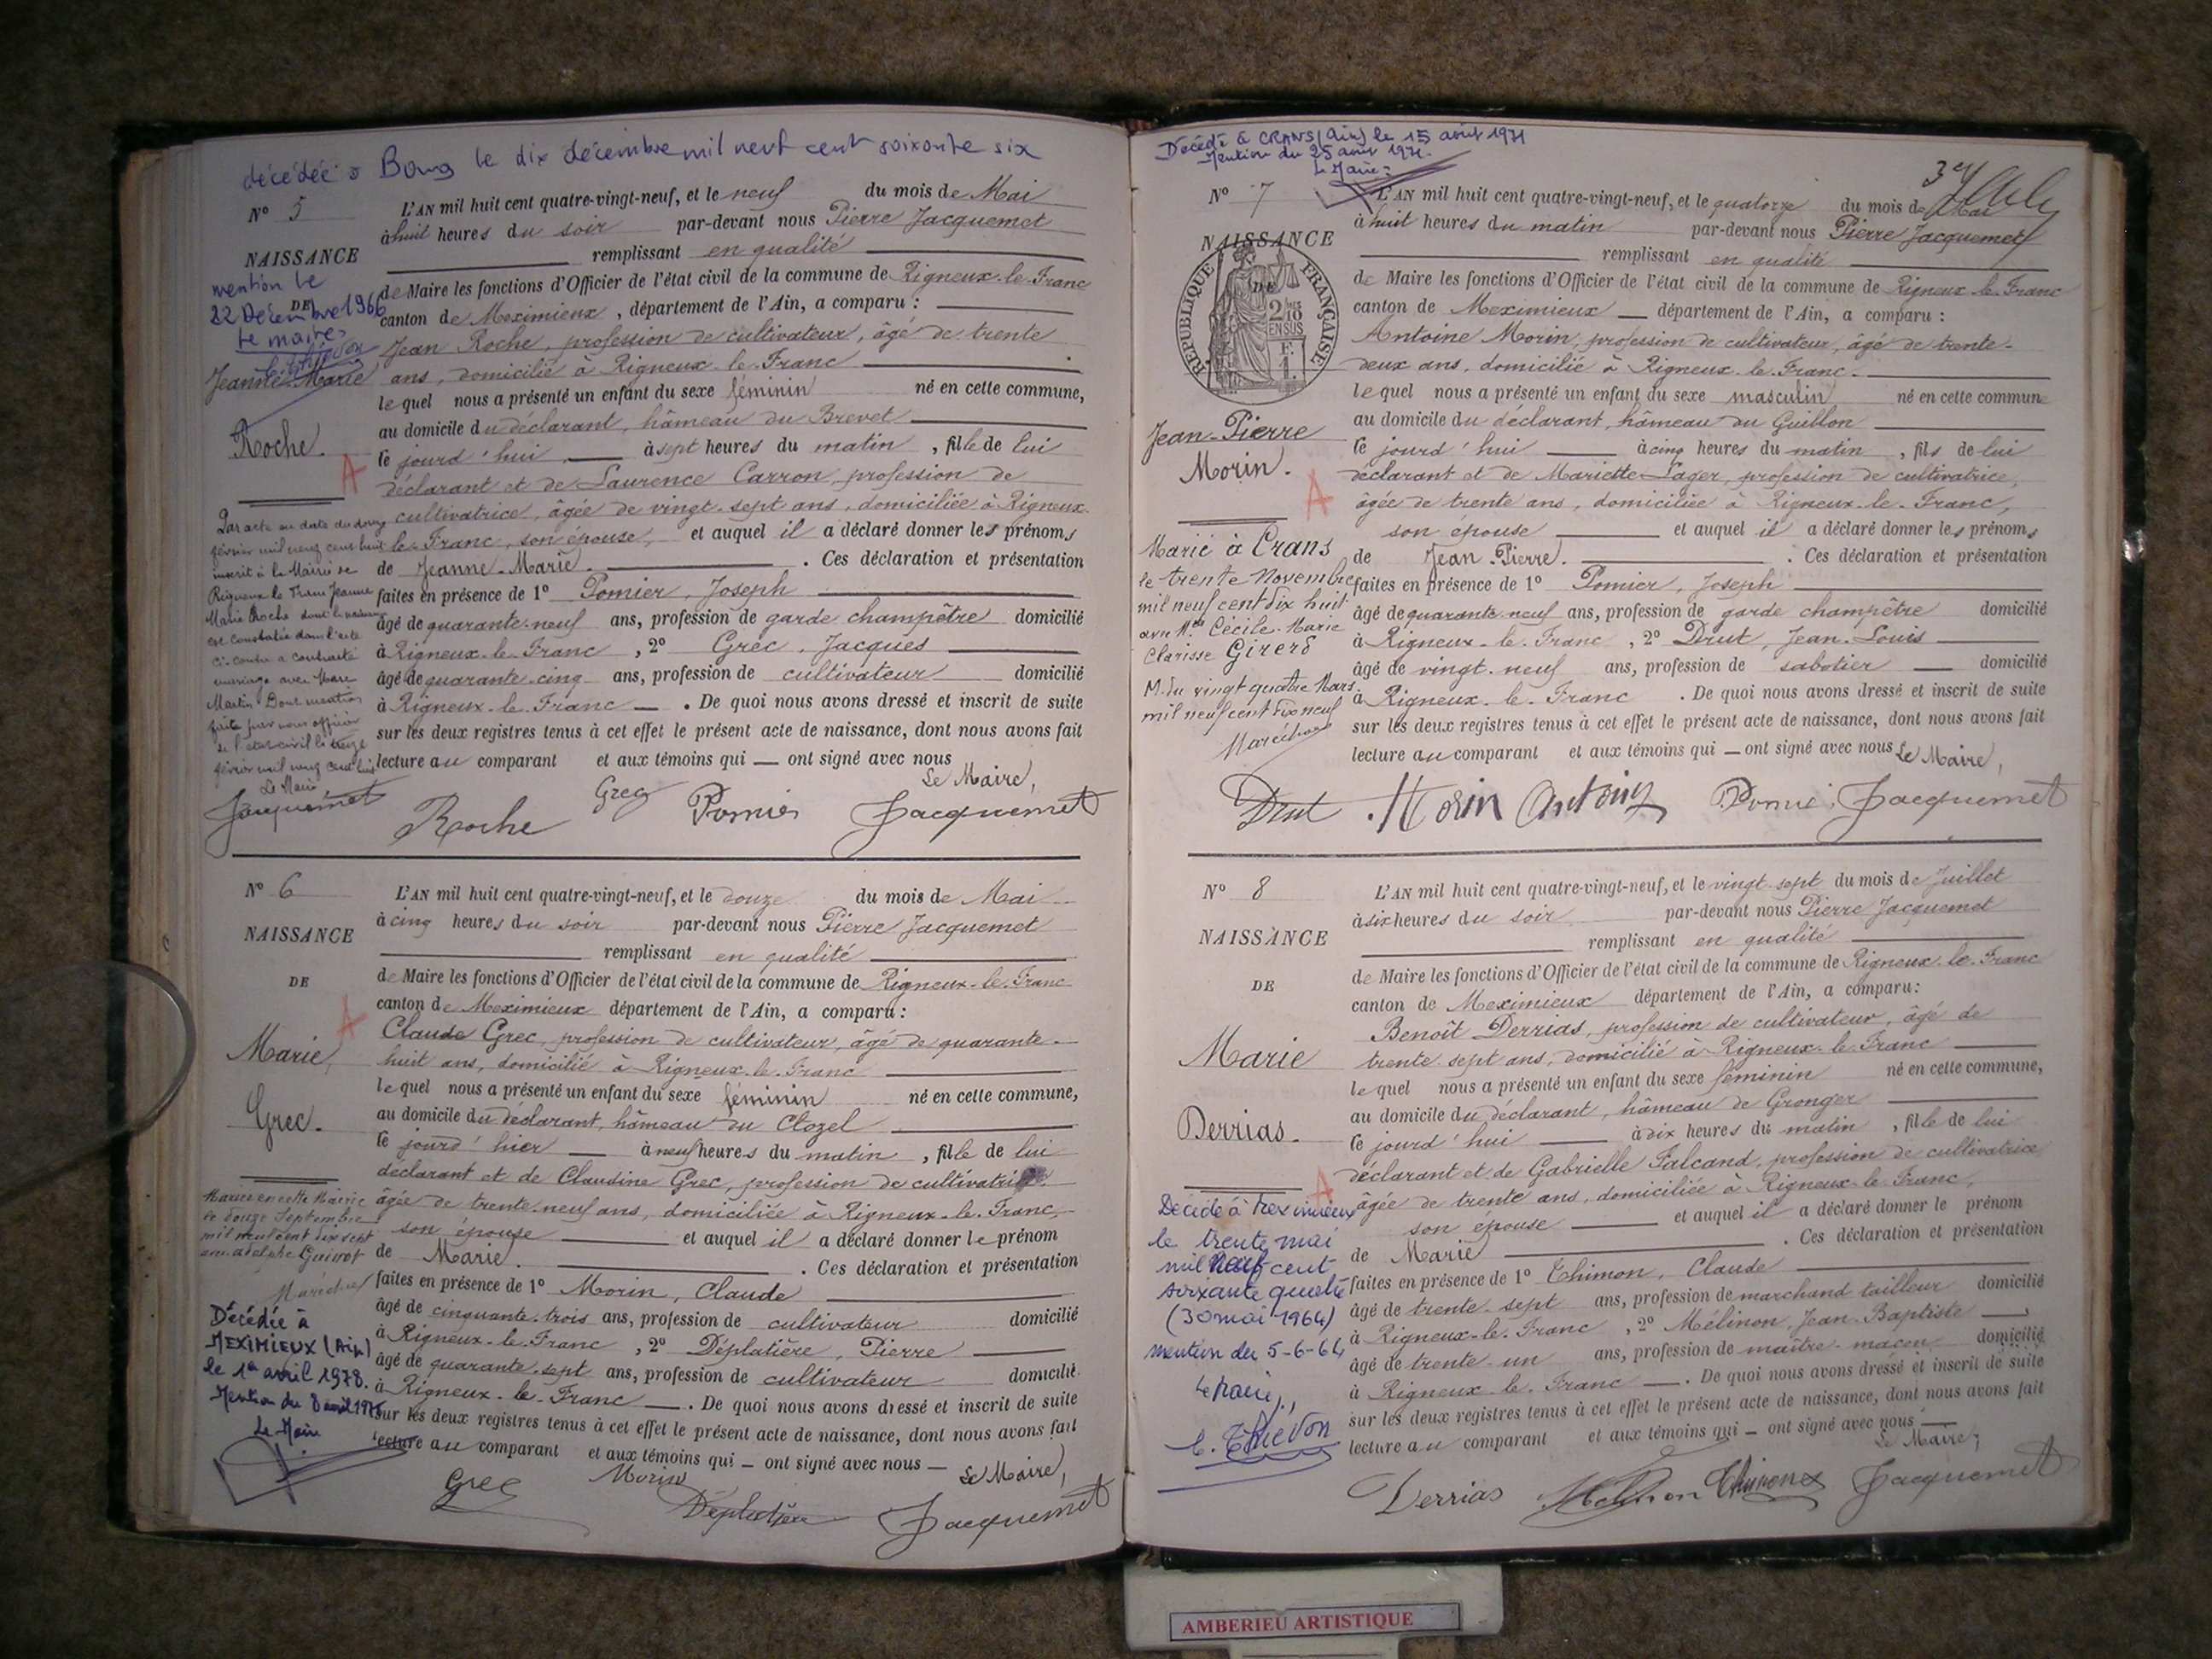 décédée à Bourg le dix décembre mil neuf cent soixante six
N° 5
NAISSANCE
DE
mention le
22 Décembre 1966
Le maire
Jeanne-Marie
Roche.
A
L'AN mil huit cent quatre-vingt-neuf, et le neuf du mois de Mai
à huit heures du soir par-devant nous Pierre Jacquemet
remplissant en qualité
de Maire les fonctions d'Officier de l'état civil de la commune de Rigneux-le-Franc
canton de Meximieux, département de l'Ain, a comparu :
Jean Roche, profession de cultivateur, âgé de trente
ans, domicilié à Rigneux-le-Franc
lequel nous a présenté un enfant du sexe féminin né en cette commune,
au domicile du déclarant, hâmeau du Brevet
ce jourd'hui à sept heures du matin, fille de lui
déclarant et de Laurence Carron, profession de
cultivatrice, âgée de vingt-sept ans, domiciliée à Rigneux-
le-Franc, son épouse, et auquel il a déclaré donner les prénoms
de Jeanne-Marie. Ces déclaration et présentation
faites en présence de 1° Pomier, Joseph
âgé de quarante-neuf ans, profession de garde champêtre domicilié
à Rigneux-le-Franc, 2° Grec, Jacques
âgé de quarante-cinq ans, profession de cultivateur domicilié
à Rigneux-le-Franc. De quoi nous avons dressé et inscrit de suite
sur les deux registres tenus à cet effet le présent acte de naissance, dont nous avons fait
lecture au comparant et aux témoins qui ont signé avec nous
Le Maire,
Par acte en date du douze
février mil neuf cent huit
inscrit à la Mairie de
Rigneux le Franc Jeanne
Marie Roche dont la naissance
est constatée dans l'acte
ci-contre a contracté
mariage avec Marc
Martin Dont mention
faite par nous officier
de l'état civil le treize
février mil neuf cent huit
Le Maire
Jacquemet
Roche Grec Pomier Jacquemet
N° 6
NAISSANCE
DE
Marie,
Grec.
A
L'AN mil huit cent quatre-vingt-neuf, et le douze du mois de Mai
à cinq heures du soir par-devant nous Pierre Jacquemet
remplissant en qualité
de Maire les fonctions d'Officier de l'état civil de la commune de Rigneux-le-Franc
canton de Meximieux département de l'Ain, a comparu :
Claude Grec, profession de cultivateur, âgé de quarante-
huit ans, domicilié à Rigneux-le-Franc
lequel nous a présenté un enfant du sexe féminin né en cette commune,
au domicile du déclarant, hâmeau du Clozel
ce jourd'hier à neuf heures du matin, fille de lui
déclarant et de Claudine Grec, profession de cultivatrice
âgée de trente-neuf ans, domiciliée à Rigneux-le-Franc,
son épouse et auquel il a déclaré donner le prénom
de Marie. Ces déclaration et présentation
faites en présence de 1° Morin, Claude
âgé de cinquante-trois ans, profession de cultivateur domicilié
à Rigneux-le-Franc, 2° Déplatière, Pierre
âgé de quarante-sept ans, profession de cultivateur domicilié
à Rigneux-le-Franc. De quoi nous avons dressé et inscrit de suite
sur les deux registres tenus à cet effet le présent acte de naissance, dont nous avons fait
lecture au comparant et aux témoins qui ont signé avec nous
Le Maire,
Mariée en cette Mairie
le douze Septembre
mil neuf cent dix sept
avec Adolphe
Maréchal
Décédée à
MEXIMIEUX (Ain)
le 1er avril 1978.
Mention du 8 avril 1978
Le Maire
Grec Morin Déplatière Jacquemet
Décédé à CRANS (Ain) le 15 août 1971
Mention du 25 août 1971.
Le Maire :
N° 7
NAISSANCE
DE
REPUBLIQUE FRANÇAISE
2/10
EN SUS
Jean-Pierre
Morin.
A
L'AN mil huit cent quatre-vingt-neuf, et le quatorze du mois de Mai
à huit heures du matin par-devant nous Pierre Jacquemet
remplissant en qualité
de Maire les fonctions d'Officier de l'état civil de la commune de Rigneux-le-Franc
canton de Meximieux département de l'Ain, a comparu :
Antoine Morin, profession de cultivateur, âgé de trente-
deux ans, domicilié à Rigneux-le-Franc.
lequel nous a présenté un enfant du sexe masculin né en cette commune
au domicile du déclarant, hâmeau du Guillon
ce jourd'hui à cinq heures du matin, fils de lui
déclarant et de Mariette Lager, profession de cultivatrice,
âgée de trente ans, domiciliée à Rigneux-le-Franc,
son épouse et auquel il a déclaré donner les prénoms
de Jean-Pierre. Ces déclaration et présentation
faites en présence de 1° Pomier, Joseph
âgé de quarante-neuf ans, profession de garde champêtre domicilié
à Rigneux-le-Franc, 2° Drut, Jean-Louis
âgé de vingt-neuf ans, profession de sabotier domicilié
à Rigneux-le-Franc. De quoi nous avons dressé et inscrit de suite
sur les deux registres tenus à cet effet le présent acte de naissance, dont nous avons fait
lecture au comparant et aux témoins qui ont signé avec nous Le Maire,
Marié à Crans
le trente Novembre
mil neuf cent dix huit
avec Mlle Cécile-Marie
Clarisse Girerd
M. du vingt quatre Mars
mil neuf cent dix neuf
Maréchal
Drut Morin Antoine Pomier Jacquemet
N° 8
NAISSANCE
DE
Marie
Derrias.
A
L'AN mil huit cent quatre-vingt-neuf, et le vingt-sept du mois de Juillet
à six heures du soir par-devant nous Pierre Jacquemet
remplissant en qualité
de Maire les fonctions d'Officier de l'état civil de la commune de Rigneux-le-Franc
canton de Meximieux département de l'Ain, a comparu :
Benoît Derrias, profession de cultivateur, âgé de
trente-sept ans, domicilié à Rigneux-le-Franc
lequel nous a présenté un enfant du sexe féminin né en cette commune,
au domicile du déclarant, hâmeau de Gronger
ce jourd'hui à dix heures du matin, fille de lui
déclarant et de Gabrielle Falcand, profession de cultivatrice
âgée de trente ans, domiciliée à Rigneux-le-Franc,
son épouse et auquel il a déclaré donner le prénom
de Marie. Ces déclaration et présentation
faites en présence de 1° Thimon, Claude
âgé de trente-sept ans, profession de marchand tailleur domicilié
à Rigneux-le-Franc, 2° Mélinon, Jean-Baptiste
âgé de trente-un ans, profession de maître-maçon domicilié
à Rigneux-le-Franc. De quoi nous avons dressé et inscrit de suite
sur les deux registres tenus à cet effet le présent acte de naissance, dont nous avons fait
lecture au comparant et aux témoins qui ont signé avec nous
Le Maire,
Décédé à Meximieux
le trente mai
mil neuf cent
soixante quatre
(30 mai 1964)
mention du 5-6-64
Le Maire,
Derrias Mélinon Thimon Jacquemet
AMBERIEU ARTISTIQUE